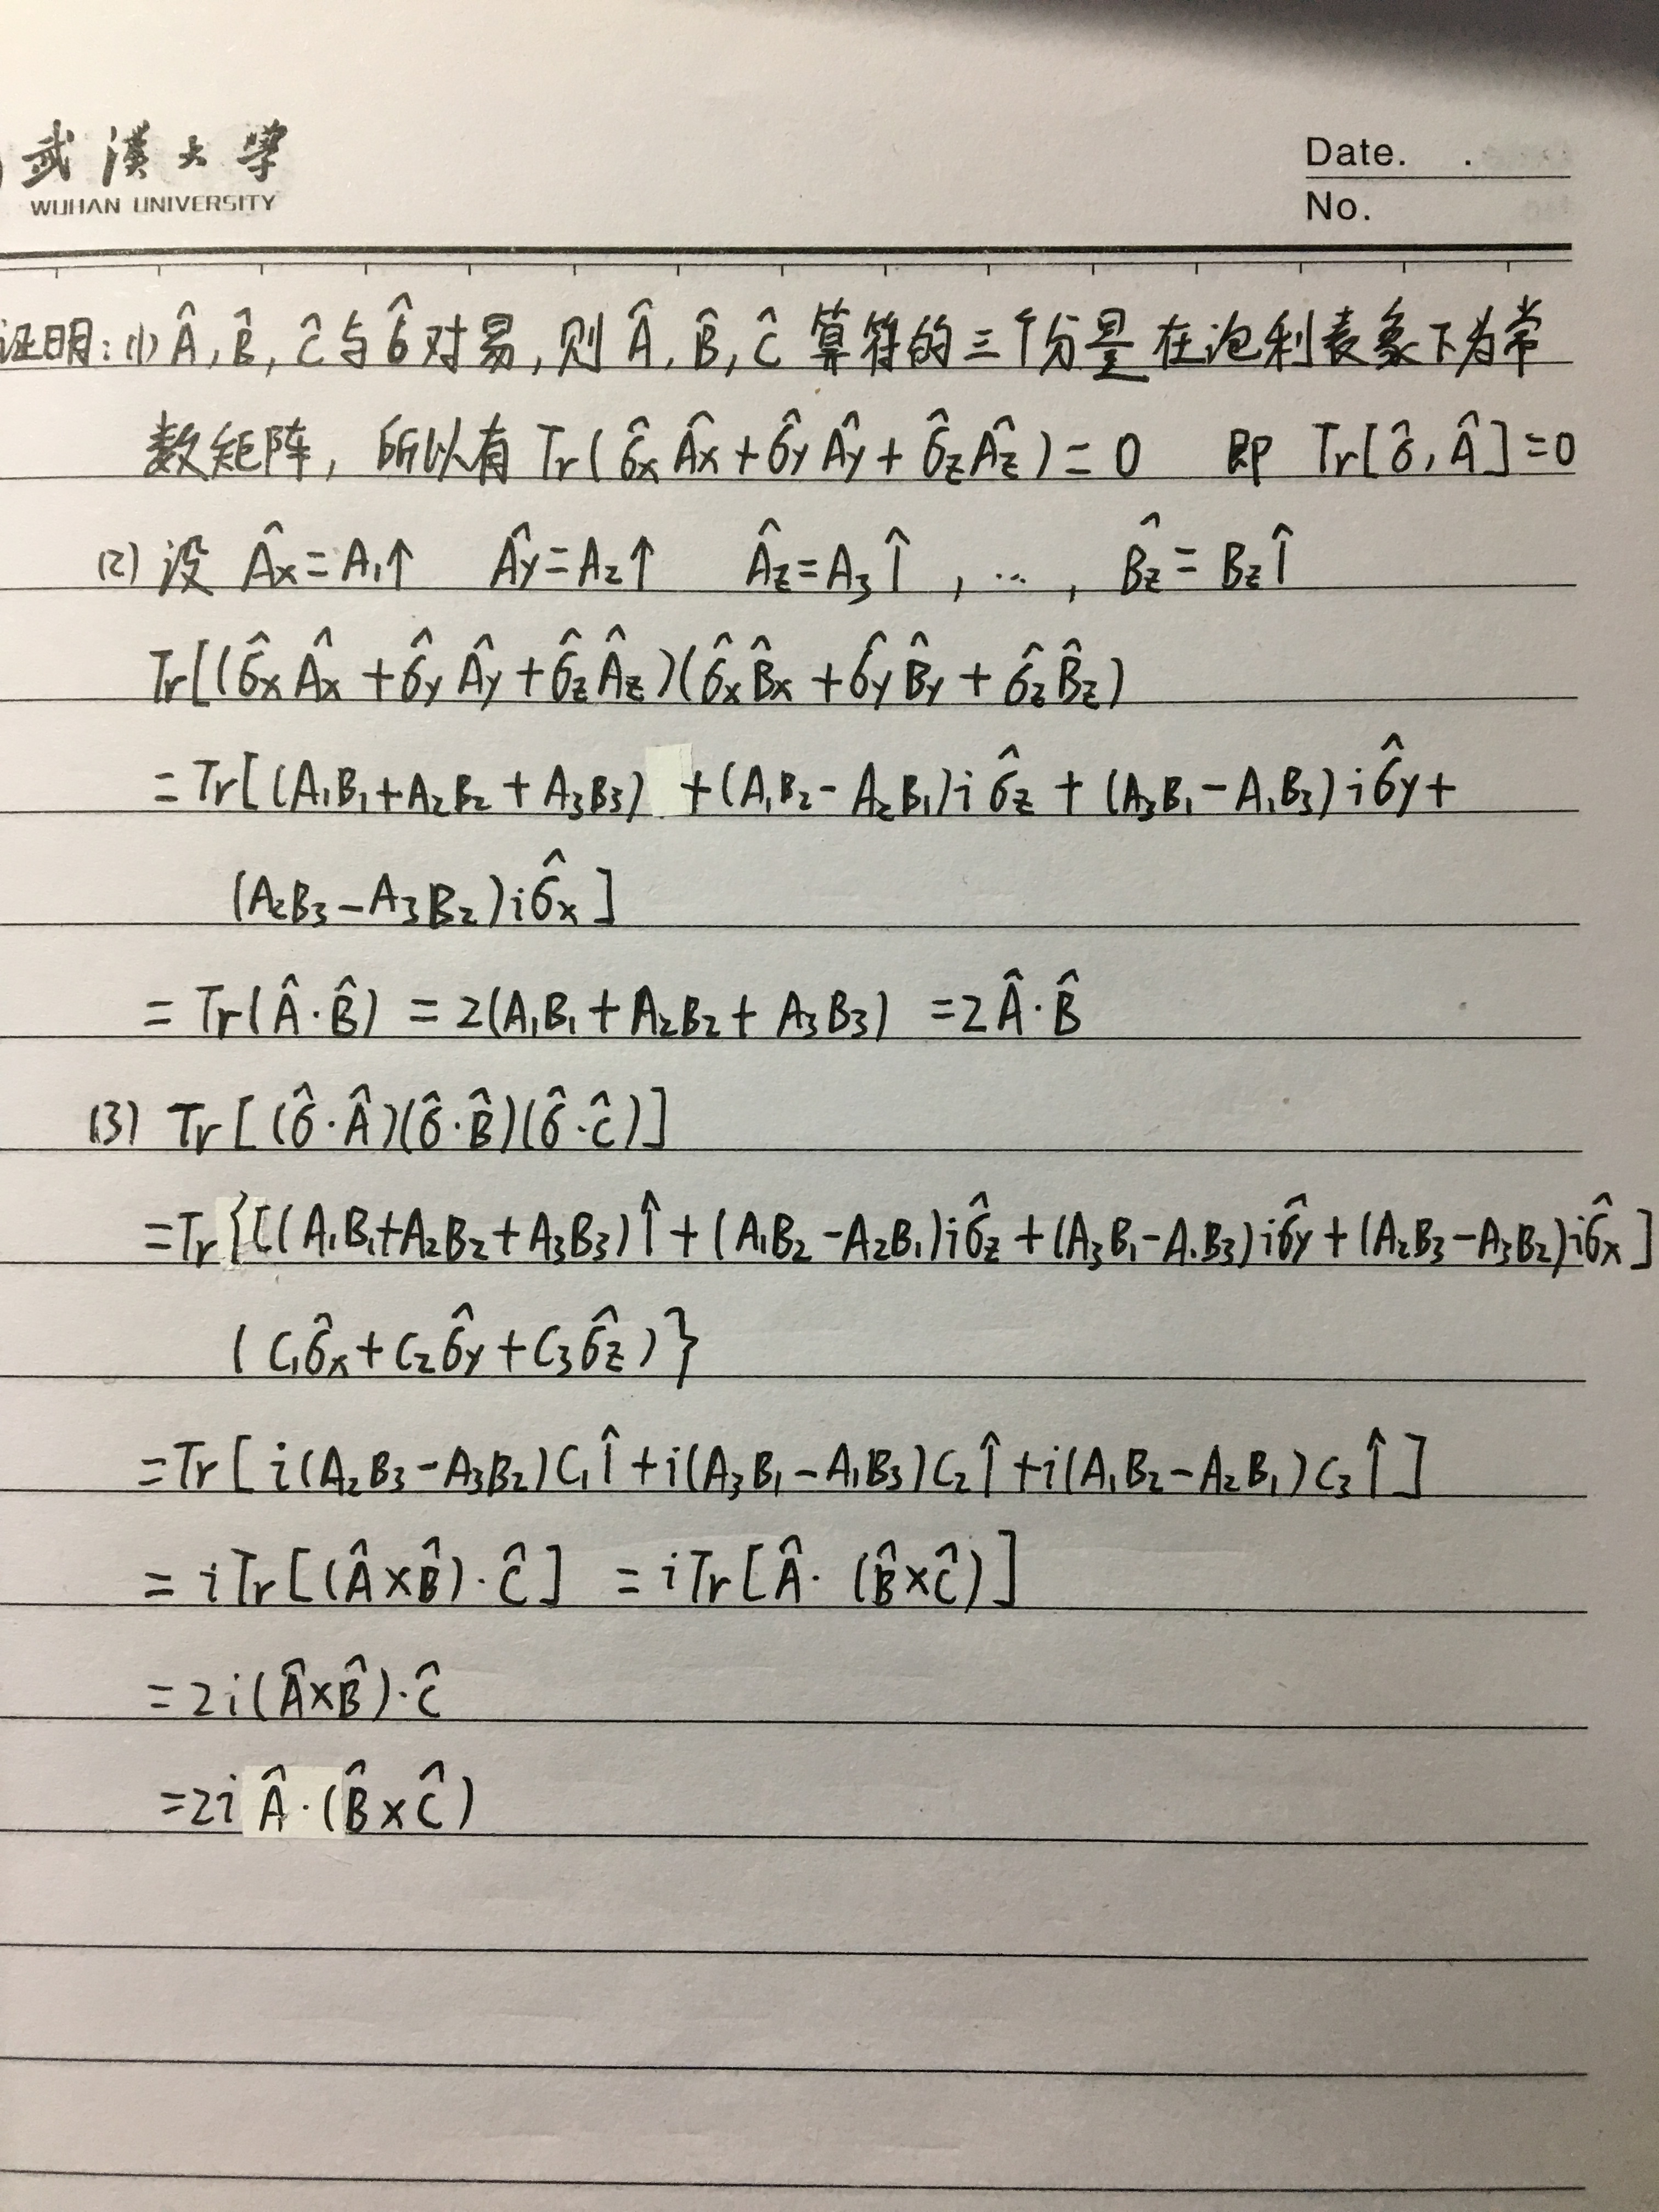 武漢大學
WUHAN UNIVERSITY
Date. .
No.
证明:(1) Â, B̂, Ĉ与σ̂对易,则 Â, B̂, Ĉ 算符的三个分量在泡利表象下为常
数矩阵, 所以有 Tr(σ̂xÂx+σ̂yÂy+σ̂zÂz)=0 即 Tr[σ̂,Â]=0
(2) 设 Âx=A₁↑ Ây=A₂↑ Âz=A₃Î , ... , B̂z=BzÎ
Tr[(σ̂xÂx+σ̂yÂy+σ̂zÂz)(σ̂xB̂x+σ̂yB̂y+σ̂zB̂z)
=Tr[(A₁B₁+A₂B₂+A₃B₃) +(A₁B₂-A₂B₁)iσ̂z+(A₃B₁-A₁B₃)iσ̂y+
(A₂B₃-A₃B₂)iσ̂x]
=Tr(Â·B̂) =2(A₁B₁+A₂B₂+A₃B₃) =2Â·B̂
(3) Tr[(σ̂·Â)(σ̂·B̂)(σ̂·Ĉ)]
=Tr{[(A₁B₁+A₂B₂+A₃B₃)Î+(A₁B₂-A₂B₁)iσ̂z+(A₃B₁-A₁B₃)iσ̂y+(A₂B₃-A₃B₂)iσ̂x]
(C₁σ̂x+C₂σ̂y+C₃σ̂z)}
=Tr[i(A₂B₃-A₃B₂)C₁Î+i(A₃B₁-A₁B₃)C₂Î+i(A₁B₂-A₂B₁)C₃Î]
=iTr[(Â×B̂)·Ĉ] =iTr[Â·(B̂×Ĉ)]
=2i(Â×B̂)·Ĉ
=2iÂ·(B̂×Ĉ)